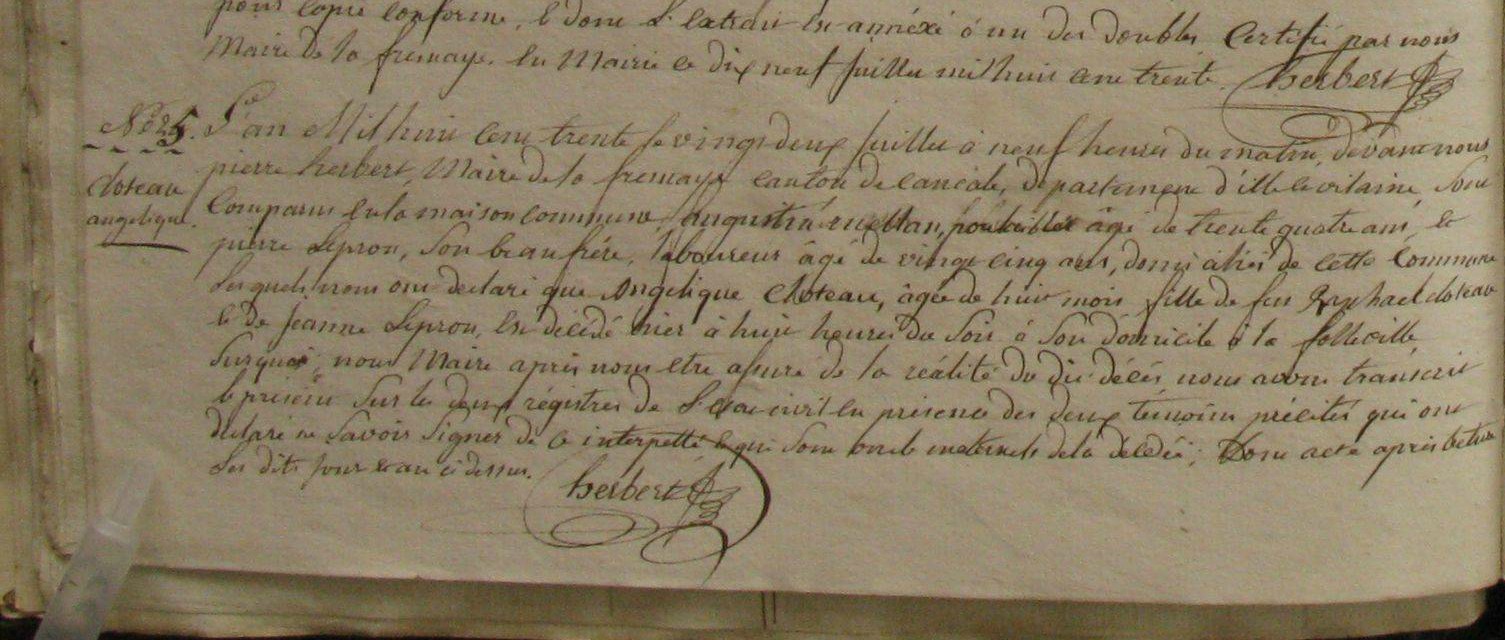 pour copie conforme, & dont l'extrait est annéxé à un des doubles Certifié par nous
Maire de la fresnaye. En Mairie ce dix neuf Juillet mil huit cent trente. herbert
No 25. L'an Mil huit Cent trente le vingt deux Juillet à neuf heures du matin, devant nous
pierre herbert, Maire de la fresnaye canton de cancale, département d'ille et vilaine, Sont
closteau
angelique.
Comparus En la maison commune, augustin ruellan, âgé de trente quatre ans, et
pierre Lepron, Son beau frére, laboureur âgé de vingt cinq ans, domiciliés de cette Commune
Lesquels nous ont declaré que Angelique Closteau, âgée de huit mois fille de feu Raphael closteau
& de Jeanne Lepron, Est décédé hier à huit heures du Soir à Son domicile à la folleville
Surquoi, nous Maire aprés nous etre assuré de la réalité du dit décés, nous avons transcrit
le présent Sur les deux régistres de l'Etat civil En présence des deux témoins précités qui ont
declaré ne Savoir Signer de ce interpellé & qui Sont oncle maternels de la décédée; Dont acte aprés lecture
Les dits jour & an ci dessus. herbert